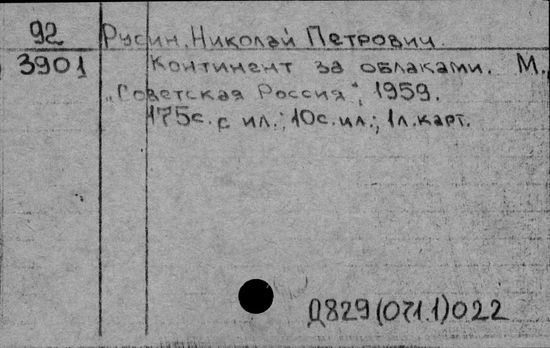 92 Русин, Николай Петрович
3901 Континент за облаками. М.,
„Советская Россия", 1959.
175с. с ил.; 10с. ил.; 1л. карт.
Д829(071.1)022